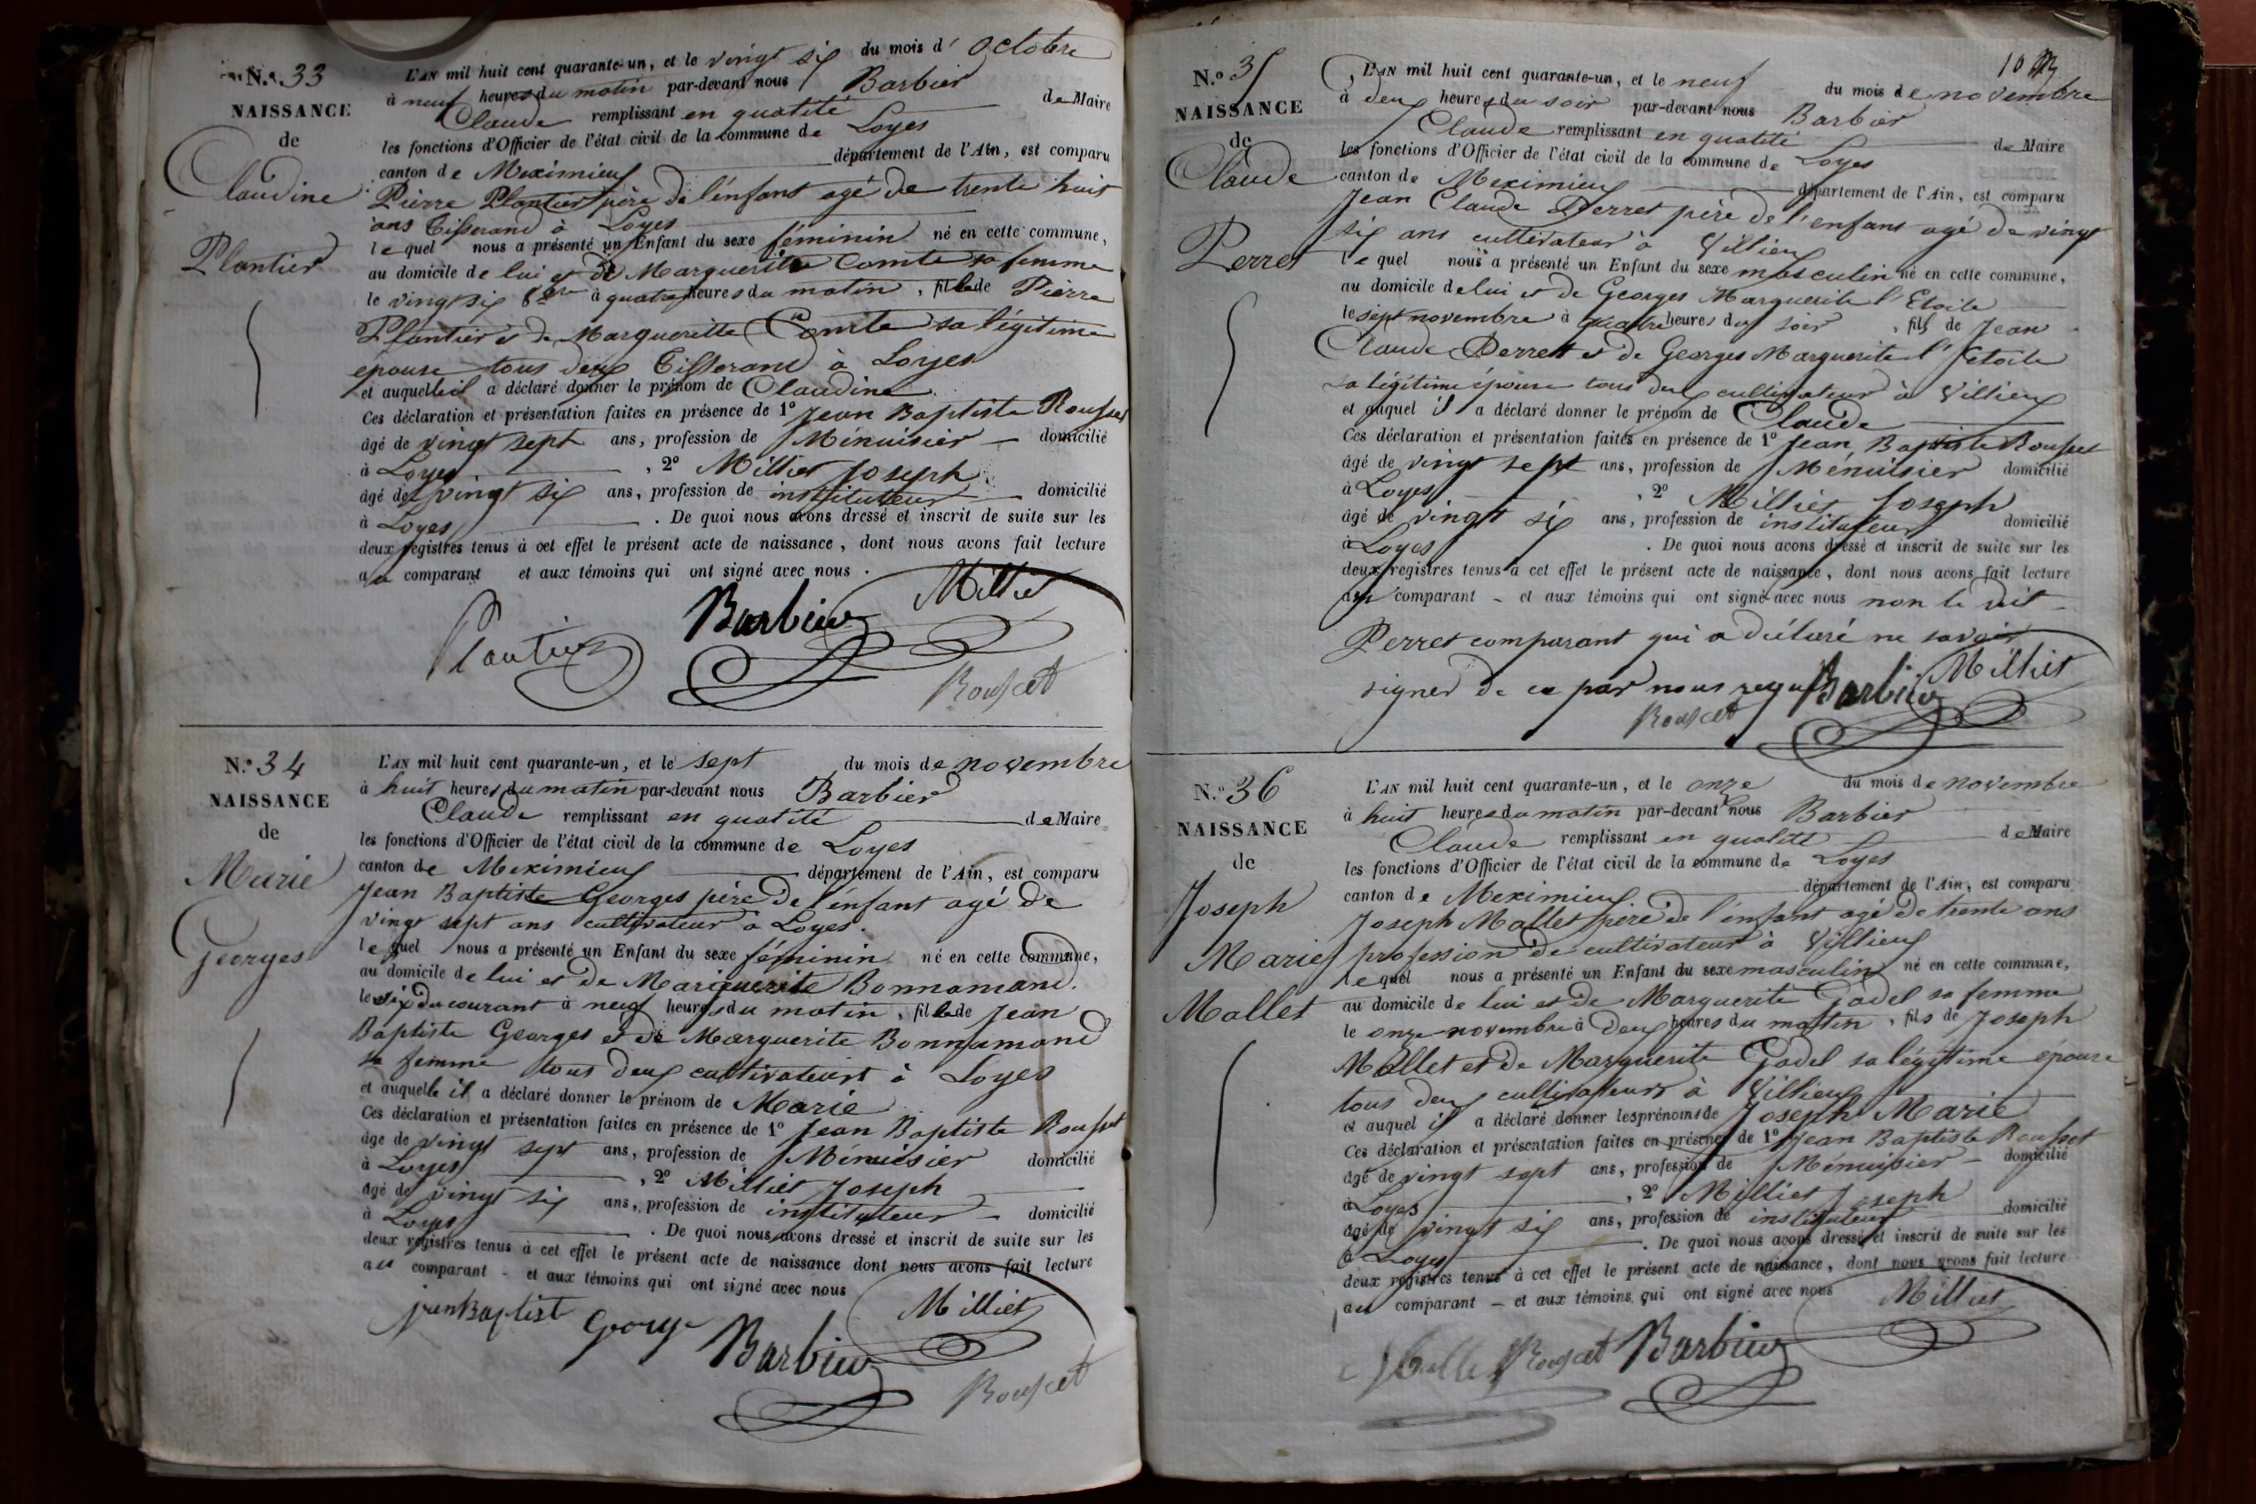 N.º 33
NAISSANCE
de
Claudine
Plantier
L'AN mil huit cent quarante-un, et le vingt six du mois d' octobre
à neuf heures du matin par-devant nous Barbier
Claude remplissant en qualité de Maire
les fonctions d'Officier de l'état civil de la commune de Loyes
canton de Meximieux département de l'Ain, est comparu
Pierre Plantier père de l'enfant agé de trente huit
ans Tisserand à Loyes
lequel nous a présenté un Enfant du sexe féminin né en cette commune,
au domicile de lui et de Marguerite Comte sa femme
le vingt six 8bre à quatre heures du matin, fille de Pierre
Plantier et de Marguerite Comte sa légitime
epouse tous deux Tisserand à Loyes
et auquelle il a déclaré donner le prénom de Claudine
Ces déclaration et présentation faites en présence de 1º Jean Baptiste Rousset
âgé de vingt sept ans, profession de Ménuisier domicilié
à Loyes, 2º Milliet Joseph
âgé de vingt six ans, profession de instituteur domicilié
à Loyes. De quoi nous avons dressé et inscrit de suite sur les
deux registres tenus à cet effet le présent acte de naissance, dont nous avons fait lecture
au comparant et aux témoins qui ont signé avec nous.
Plantier Barbier Milliet
Rousset
N.º 34
NAISSANCE
de
Marie
Georges
L'AN mil huit cent quarante-un, et le sept du mois de novembre
à huit heures du matin par-devant nous Barbier
Claude remplissant en qualité de Maire
les fonctions d'Officier de l'état civil de la commune de Loyes
canton de Meximieux département de l'Ain, est comparu
Jean Baptiste Georges père de l'enfant agé de
vingt sept ans cultivateur à Loyes.
lequel nous a présenté un Enfant du sexe féminin né en cette commune,
au domicile de lui et de Marguerite Bonnamand.
le six du courant à neuf heures du matin, fille de Jean
Baptiste Georges et de Marguerite Bonnamand
sa femme tous deux cultivateurs à Loyes
et auquelle il a déclaré donner le prénom de Marie
Ces déclaration et présentation faites en présence de 1º Jean Baptiste Rousset
âgé de vingt sept ans, profession de Menuisier domicilié
à Loyes, 2º Milliet Joseph
âgé de vingt six ans, profession de instituteur domicilié
à Loyes. De quoi nous avons dressé et inscrit de suite sur les
deux registres tenus à cet effet le présent acte de naissance dont nous avons fait lecture
au comparant - et aux témoins qui ont signé avec nous
jean Baptist George Barbier Milliet
Rousset
10
N.º 35
NAISSANCE
de
Claude
Perret
L'AN mil huit cent quarante-un, et le neuf du mois de novembre
à deux heures du soir par-devant nous Barbier
Claude remplissant en qualité de Maire
les fonctions d'Officier de l'état civil de la commune de Loyes
canton de Meximieux département de l'Ain, est comparu
Jean Claude Perret père de l'enfant agé de vingt
six ans cultivateur à Villieux
lequel nous a présenté un Enfant du sexe masculin né en cette commune,
au domicile de lui et de Georges Marguerite l'Etoile
le sept novembre à quatre heures du soir, fils de Jean
Claude Perret et de Georges Marguerite l'Etoile
sa légitime épouse tous deux cultivateur à Villieux
et auquel il a déclaré donner le prénom de Claude
Ces déclaration et présentation faites en présence de 1º Jean Baptiste Rousset
âgé de vingt sept ans, profession de Ménuisier domicilié
à Loyes, 2º Milliet Joseph
âgé de vingt six ans, profession de instituteur domicilié
à Loyes. De quoi nous avons dressé et inscrit de suite sur les
deux registres tenus à cet effet le présent acte de naissance, dont nous avons fait lecture
au comparant - et aux témoins qui ont signé avec nous non le dit
Perret comparant qui a déclaré ne savoir
signer de ce par nous requis Barbier Milliet
Rousset
N.º 36
NAISSANCE
de
Joseph
Marie
Mallet
L'AN mil huit cent quarante-un, et le onze du mois de novembre
à huit heures du matin par-devant nous Barbier
Claude remplissant en qualité de Maire
les fonctions d'Officier de l'état civil de la commune de Loyes
canton de Meximieux département de l'Ain, est comparu
Joseph Mallet père de l'enfant agé de trente ans
profession de cultivateur à Villieux
lequel nous a présenté un Enfant du sexe masculin né en cette commune,
au domicile de lui et de Marguerite Godel sa femme
le onze novembre à deux heures du matin, fils de Joseph
Mallet et de Marguerite Godel sa légitime épouse
tous deux cultivateurs à Villieux
et auquel il a déclaré donner les prénoms de Joseph Marie
Ces déclaration et présentation faites en présence de 1º Jean Baptiste Rousset
âgé de vingt sept ans, profession de Ménuisier domicilié
à Loyes, 2º Milliet Joseph
âgé de vingt six ans, profession de instituteur domicilié
à Loyes. De quoi nous avons dressé et inscrit de suite sur les
deux registres tenus à cet effet le présent acte de naissance, dont nous avons fait lecture
au comparant - et aux témoins qui ont signé avec nous Milliet
Rousset Barbier